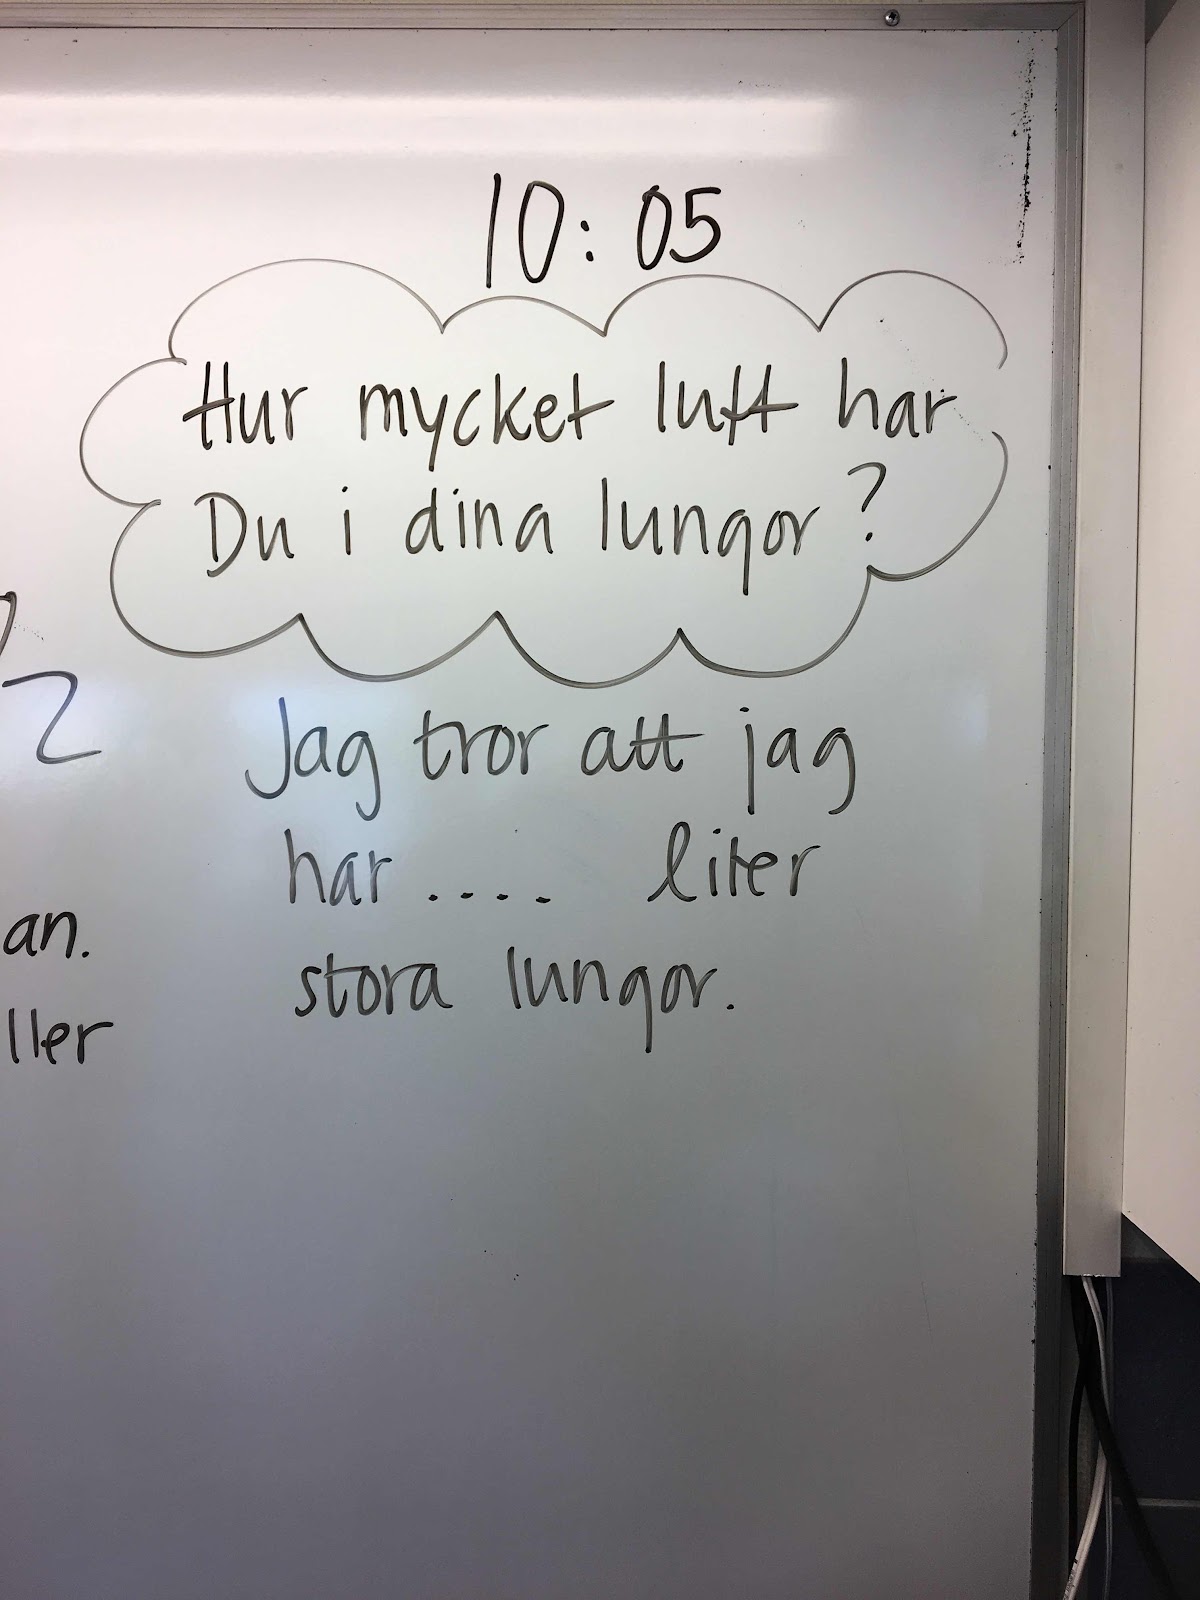 10:05
Hur mycket luft har
Du i dina lungor?
2
Jag tror att jag
har .... liter
an.
stora lungor.
ller